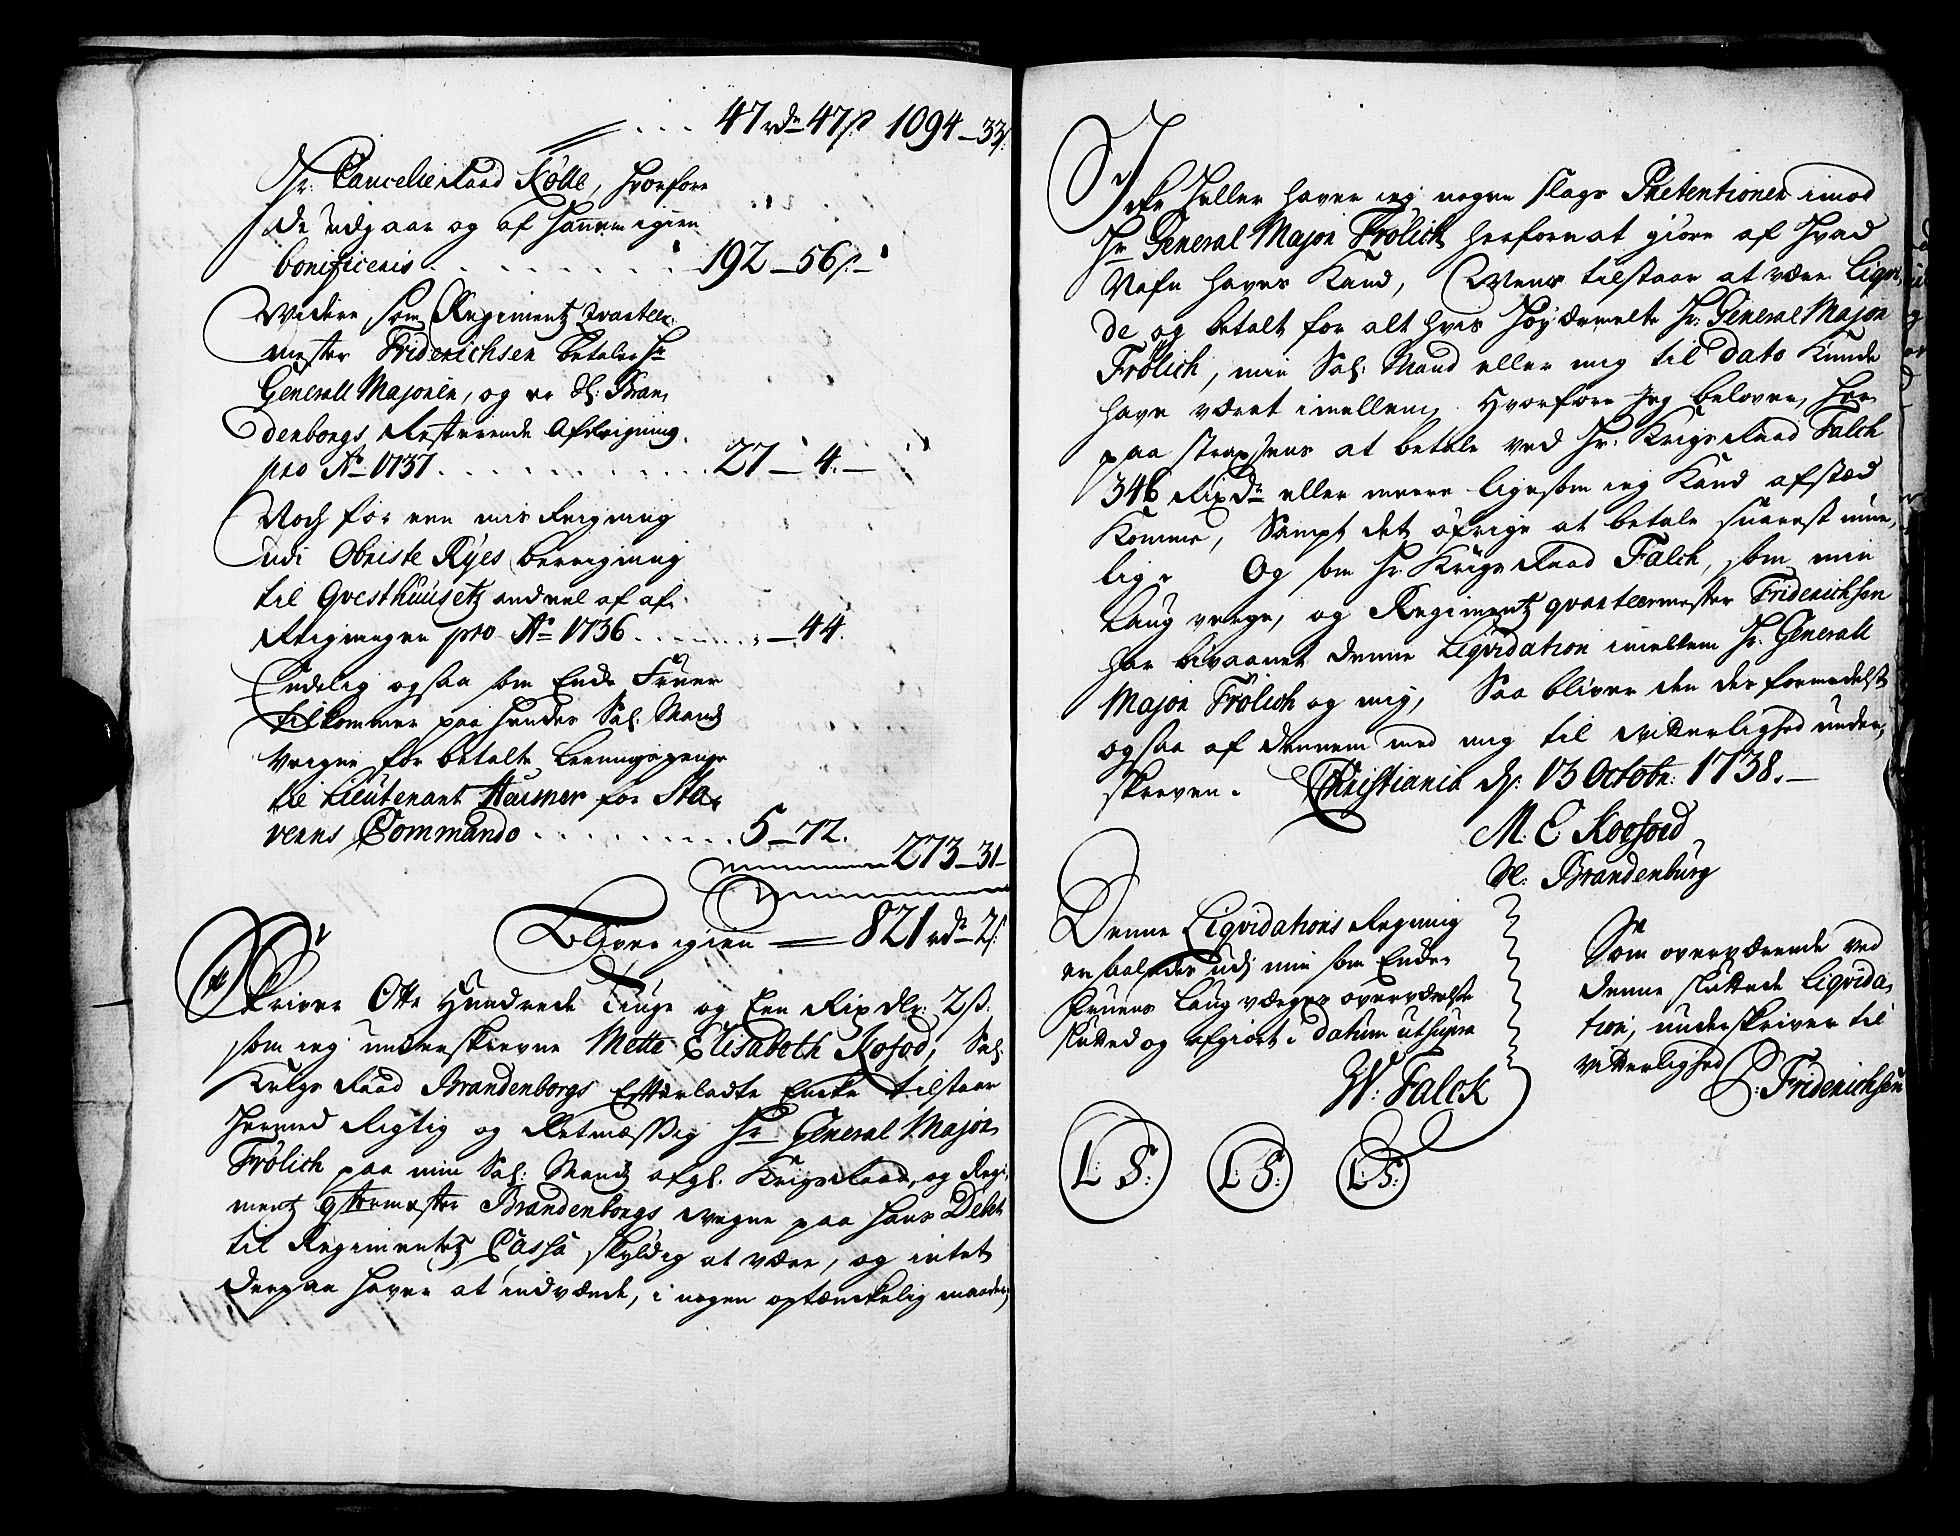 47 rdr 47 ß 1094 - 33 ß:
Hr: Cancelie Raad Rölle, hvorfore
de udgaar og af hannem igien
bonificeris . . . . . . . 192 - 56 ß -
Widere som Regimentz qvarteer
mester Friderichsen betaler Hr
Generall Majoren, og er Sl: Bran,
denborgs Resterende Afreigning
pro Ao 1737 . . . . . . . 27 - 4. -
Noch for een misreigning
udi Obriste Ryes bereigning
til Qvesthuusetz andeel af af,
Reigningen pro Ao 1736 . . . . . - 44.
Endelig ogsaa som Encke Fruen
tilkommer paa hendes Sal: Mandz
Vegne for betalte Leeningspenge
til Lieutenant Hausner for Sta,
verns Commando . . . . . . 5 - 72.
273 - 31 -
Bliver igien = 821 rdr - 2 ß:
Skriver Otte Hundrede Tiuge og Een Rixdlr: 2 ß.
som ieg underskrevne Mette Elisabeth Kofod, Sal:
Krigs Raad Brandenborgs Effterladte Encke tilstaar
hermed Rigtig og Retmæssig Hr General Major
Frölich paa min Sal: Mandz afgl. Krigs Raad, og Regi,
mentz qtermester Brandenborgs vegne paa hans Debet
til Regimentetz Cassa skyldig at være, og intet
derpaa haver at indvænde, i nogen optænckelig maader,
Icke heller haver ieg nogen slags Prætentioner imod
Hr General Major Frölich herforuden at giøre af hvad
Nafn haves Kand, Mens tilstaar at være Liqvi,
de og betalt for alt hvis Høybemelte Hr: General Major
Frölich, min Sal: Mand eller mig til dato Kunde
have været imellem, Hvorfore Jeg belover, her
paa straxsens at betale ved Hr: Krigs Raad Falck
346 Rixdr eller meere ligesom ieg Kand afsted
Komme, Sampt det øfrige at betale snarest mue,
lig. Og som Hr Krigs Raad Falck, som min
Laug verge, og Regimentz qvarteermester Friderichsen
har bivaanet denne Liqvidation imellem Hr: Generall
Major Frölich og mig, Saa bliver den der formedelst
ogsaa af dennem med mig til Vitterlighed under,
skreven. Christiania d: 13 Octobr: 1738. -
M. E Koefoed
Sl: Brandenburg
Denne Liqvidations Regning
er saaledes udj min som Encke
Fruens Laug værges overværelse
slutted og afgiort i datum utsupra
W: Falck
Som overværende ved
denne sluttede Liqvida,
tion, underskriver til
Vitterlighed
P: Friderichsen
L: S: L: S: L: S: